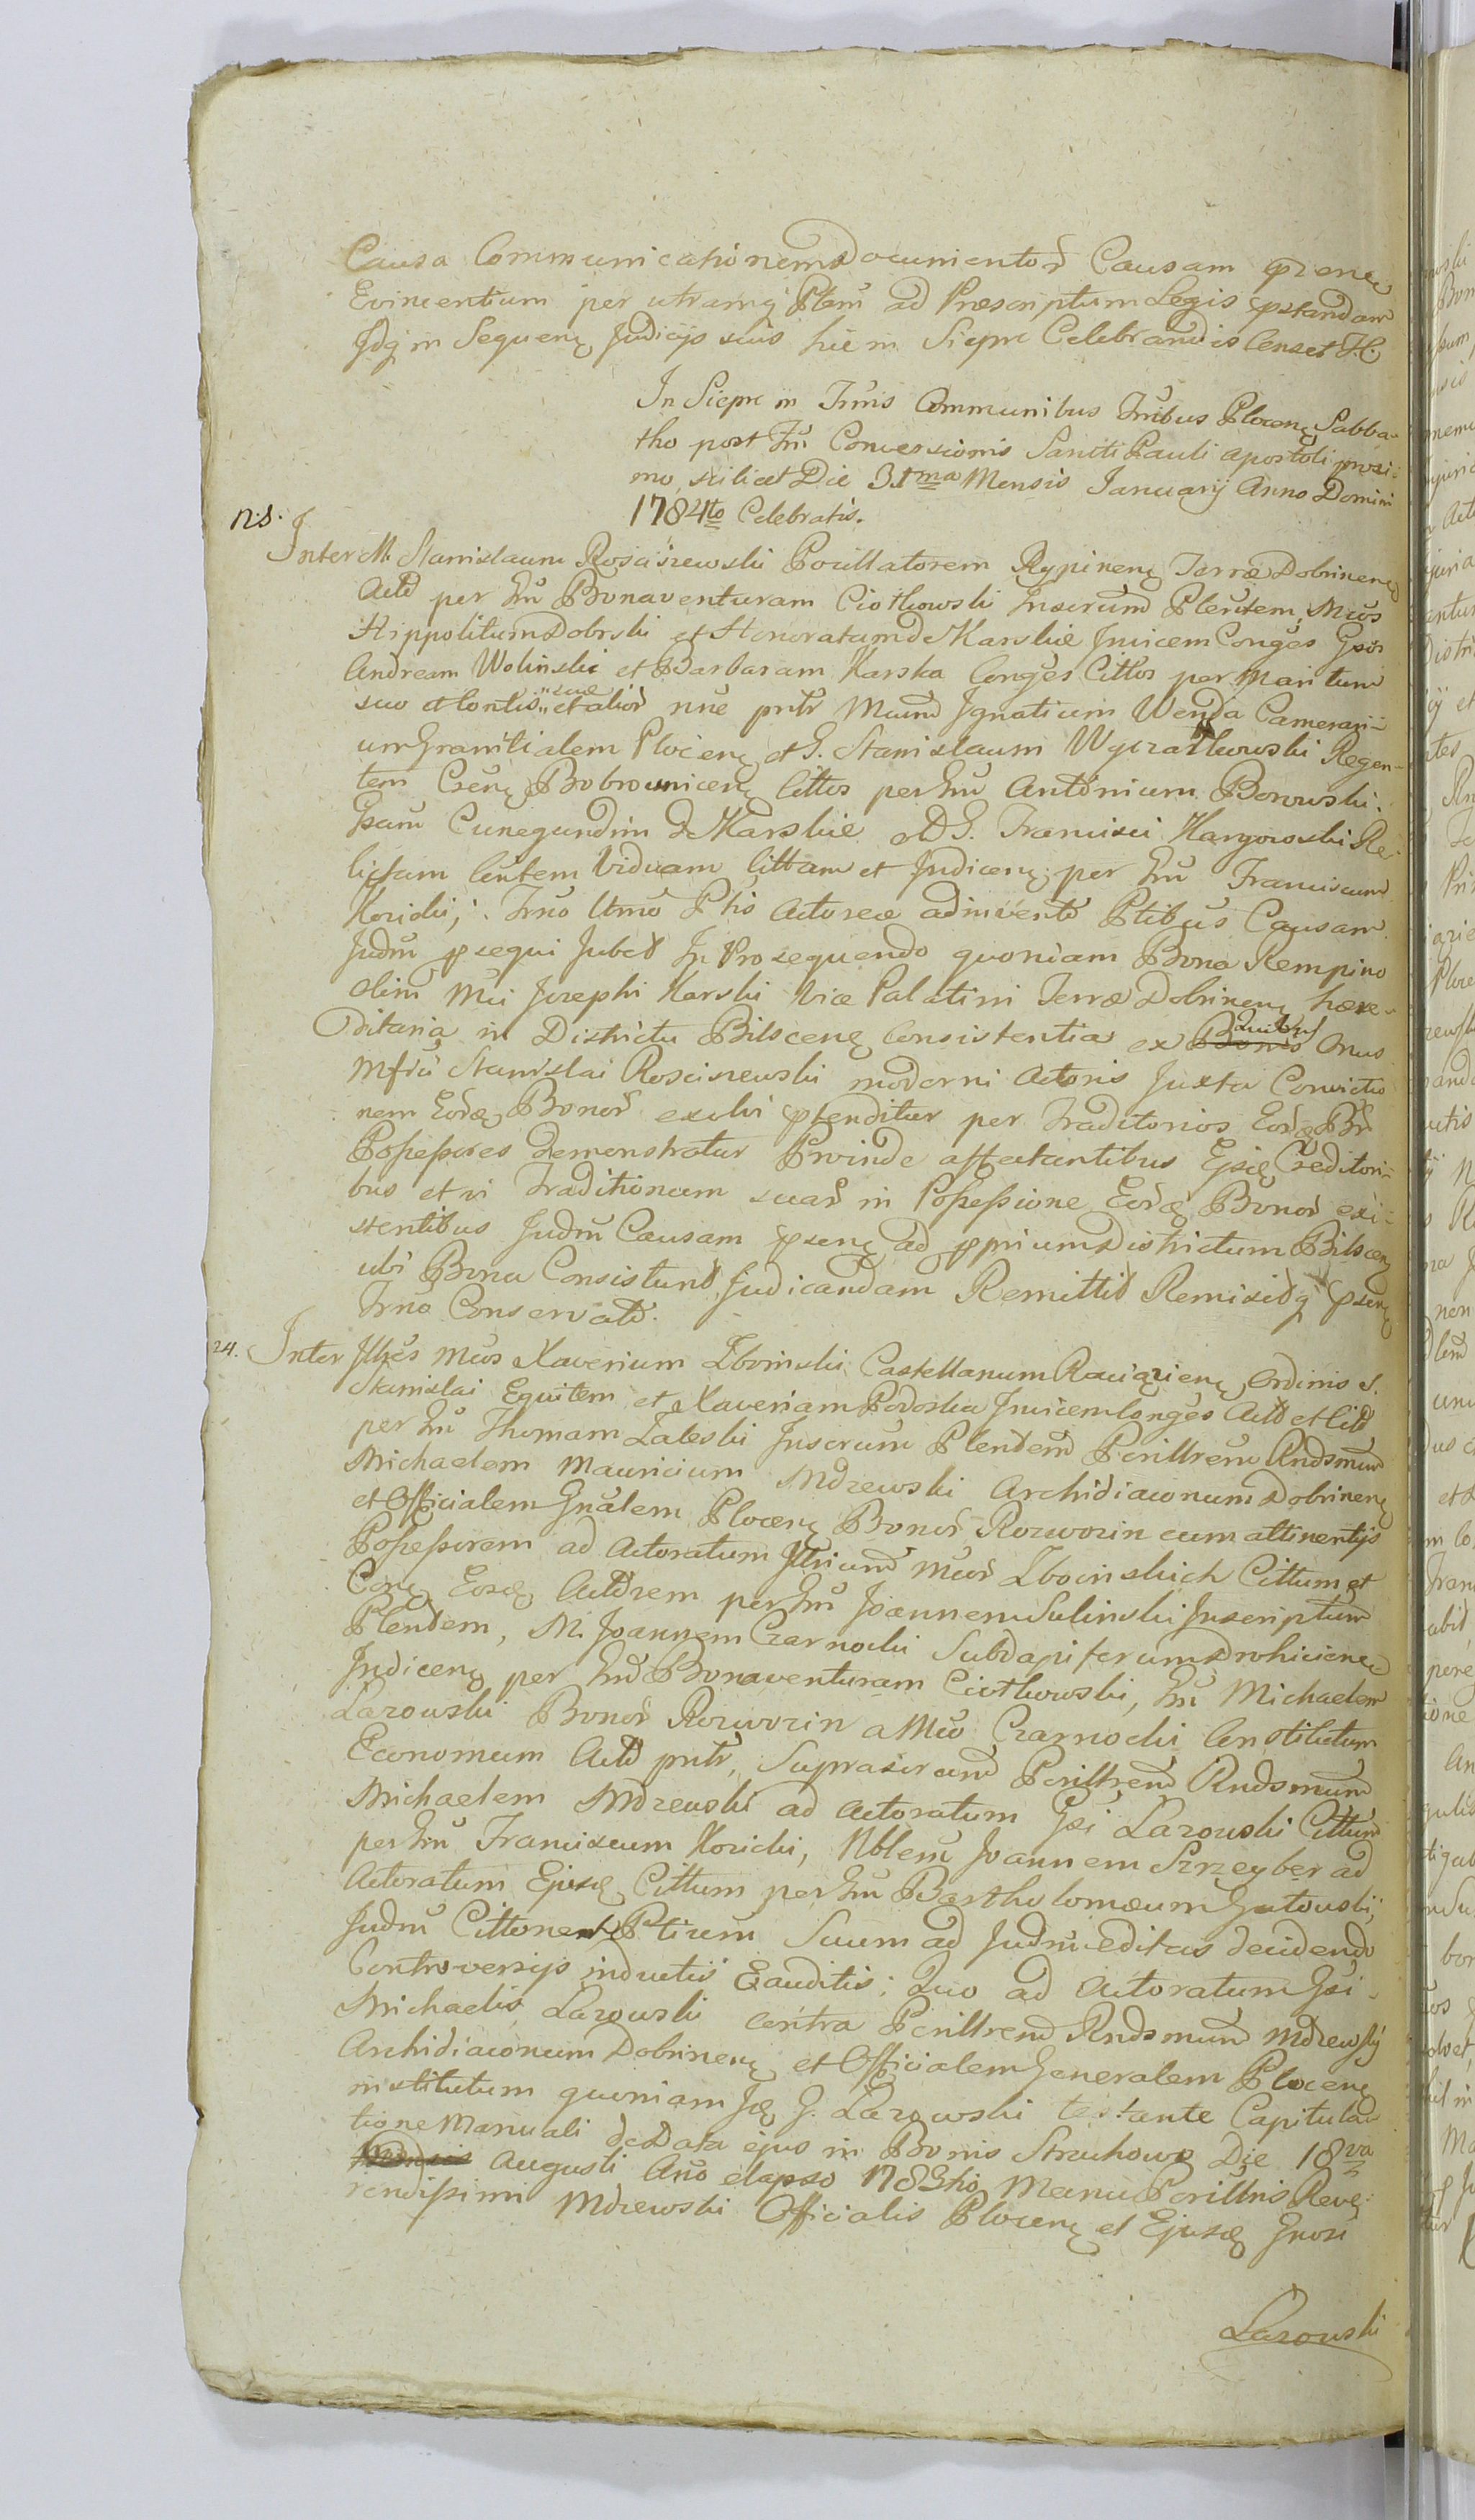 Causa Communicationem Documentor Causam pzenę
Evincentium per utramq Ptem ad Præscriptum Legis pstandam
Idq in Sequenę Judicijs suis hic in Siepre Celebrandis Censet H.
In Sieprc in Trnis Communibus Trribus Plocenę Sabba-
tho post Fm Conversionis Sancti Pauli Apostoli proxi-
mo, scilicet Die 31ma Mensis Januarij Anno Domini
1784to Celebratis.
n.s.
Inter M. Stanislaum Rosciszewski Pocillatorem Rypinenę Terræ Dobrinenę
Actd per Gn Bonaventuram Ciotkowski Inscrum Plentem, Mcos
Hippolitum Dobrski et Honoratam de Karskie Invicem Conges Gsos
Andream Wolinski et Barbaram Karska Conges Cittos per Maritum
suo et Contis suæ et alior nnc pntr Mcum Ignatium Wenda Camerarij-
um Granicialem Plocenę et G. Stanislaum Wyczałkowski Regen-
tem Csenę Bobrownicenę Cittos per Gn Antonium Borowski.
Gsam Cunegundim de Karskie olD G. Francisci Kargowski Re-
lictam Centem Viduam Cittam et Indicenę per Gn Franciscum
Kozicki, Trno Utmo Ptis Actoreæ adinvento Ptibus Causam
Judm psequi Jubet In Prosequendo quoniam Bona Rempino
olim Mci Josephi Karski Vice Palatini Terræ Dobrinenę hære-
ditaria in Districtu Bilscenę Consistentia ex Bonis Quibus Onus
Mfci Stanislai Rosciszewski moderni Actoris Juxta Convictio
nem Eordę Bonor exolvi ptenditur per Traditorios Eordę Br
Possessores demonstratur Proinde affectantibus Ejsdę Creditori-
bus et vi Traditionum suar in Possessione Eordę Bonor exi-
stentibus Judm Causam pzenę ad pprium Districtum Bilscenę
ubi Bona Consistunt, Judicandam Remittit Remisitq pzenę
Trno Conservato.
24. Inter Illres Mcos Xaverium Zboinski Castellanum Raciązienę Ordinis S.
Stanislai Equitem et Xaveriam Podoska Invicem Conges Actd et Citt
per Gn Thomam Zaleski Inscrum Plendem Perilltrem Rndsmum
Michaelem Mauricium Mdzewski Archidiaconum Dobrinenę
et Officialem Gnalem Plocenę Bonor Rozwozin cum attinentijs
Possessorem ad Actoratum Illrium Mcor Zboinskich Cittum et
Conę Eosdę Actorem per Gn Joannem Sulinski Inscriptum
Plendem, M. Joannem Czarnocki Subdapiferum Drohicienę
Indicenę per Gn Bonaventuram Ciotkowski, Gn Michaelem
Lazowski Bonor Rozwozin a Mco Czarnocki Constitutum
Economum Actd pntr, Suprascrcum Perilltrem Rndsmum
Michaelem Mdzewski ad Actoratum Gsi Lazowski Cittum
per Gn Franciscum Kozicki, Nblem Joannem Szrzeyber ad
Actoratum Ejusdę Cittum per Gn Bartholomæum Gutowski,
Judm Cittone Ptium Suum ad Judm editas decidendo
Controversijs inductis Exauditis; Quo ad Actoratum Gsi
Michaelis Lazowski contra Perilltrem Rndsmum Mdzewskij
Archidiaconum Dobrinenę et Officialem Generalem Plocenę
institutum quoniam Idę G. Lazowski testante Capitula-
tione Manuali de Data ejus in Bonis Struchowo Die 18va
Mensis Augusti Ano elapso 1783tio Manu Perilltris Reve-
rendissimi Mdzewski Officialis Plocenę et Ejusdę Gnosi
Lazowski